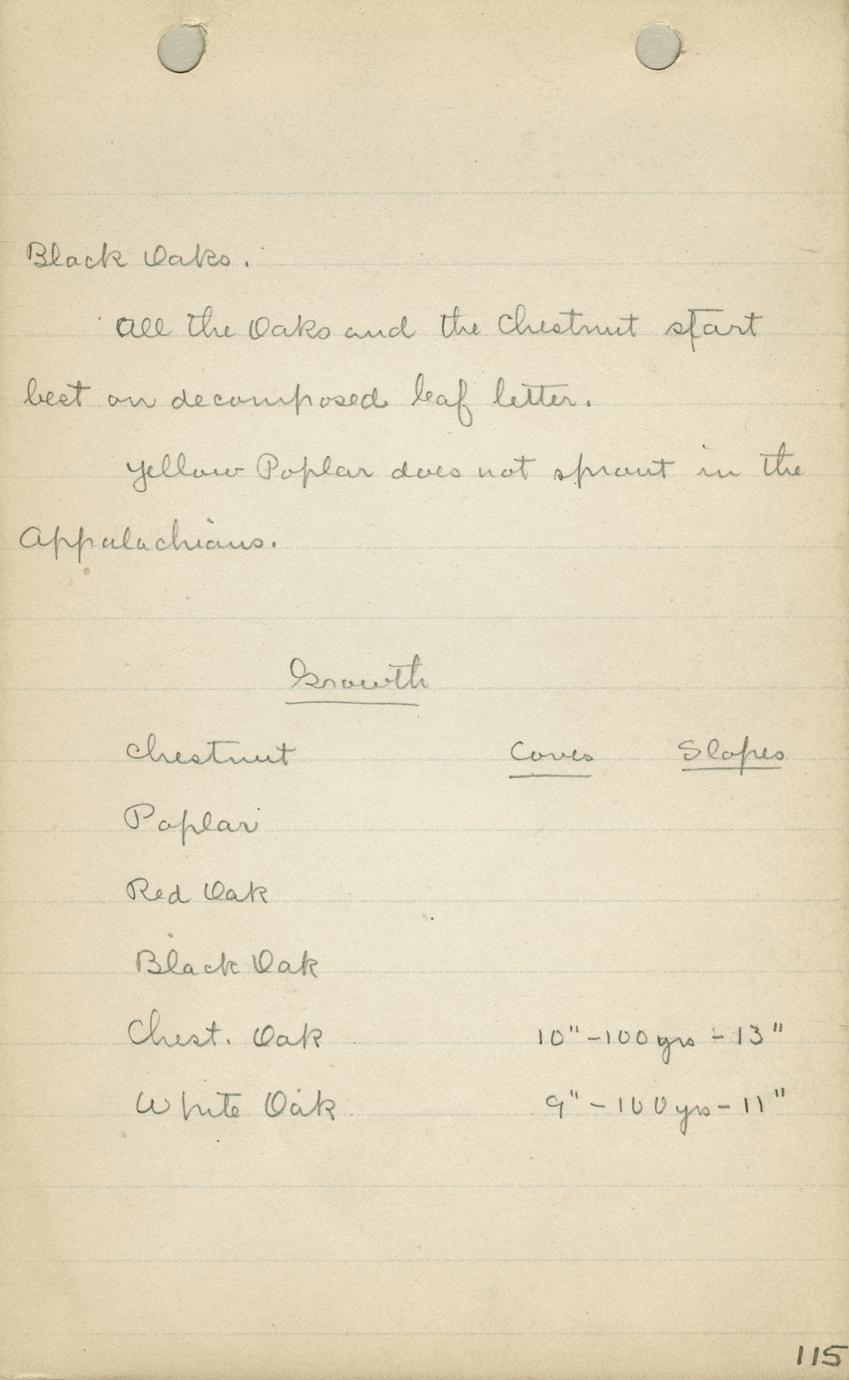 Black Oaks.
All the Oaks and the Chestnut start
best on decomposed leaf letter.
Yellow Poplar does not sprout in the
Appalachians.
Growth
Chestnut Coves Slopes
Poplar
Red Oak
Black Oak
Chest. Oak 10" - 100 yrs - 13"
White Oak 9" - 100 yrs - 11"
115